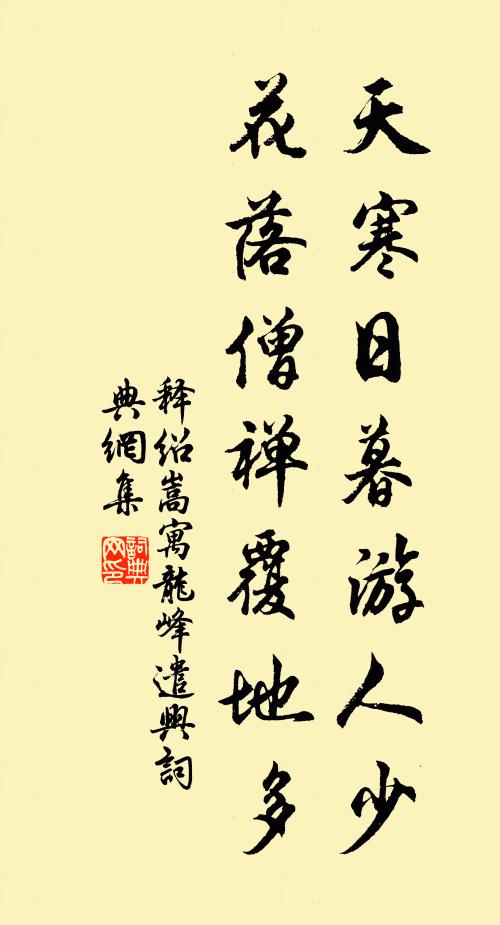 天寒日暮游人少
花落僧禅覆地多
释绍嵩寓龍峰遣興詞
典網集
詞典网印